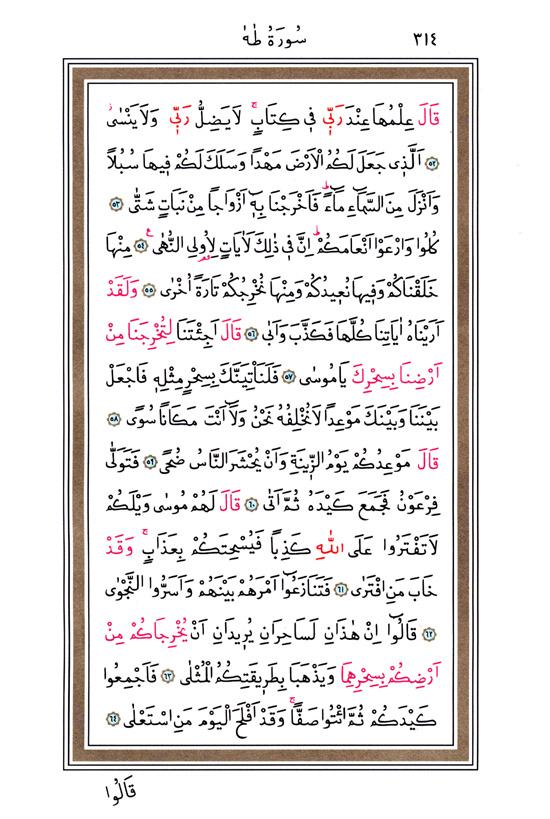 ٣١٤ سُورَةُ طٰهٰ
قَالَ عِلْمُهَا عِنْدَ رَبّ۪ي ف۪ي كِتَابٍۚ لَا يَضِلُّ رَبّ۪ي وَلَا يَنْسٰىۘ
﴿٥٢﴾ اَلَّذ۪ي جَعَلَ لَكُمُ الْاَرْضَ مَهْدًا وَسَلَكَ لَكُمْ ف۪يهَا سُبُلًا
وَاَنْزَلَ مِنَ السَّمَٓاءِ مَٓاءًۜ فَاَخْرَجْنَا بِه۪ٓ اَزْوَاجًا مِنْ نَبَاتٍ شَتّٰى ﴿٥٣﴾
كُلُوا وَارْعَوْا اَنْعَامَكُمْۜ اِنَّ ف۪ي ذٰلِكَ لَاٰيَاتٍ لِاُو۬لِي النُّهٰى۟ ﴿٥٤﴾ مِنْهَا
خَلَقْنَاكُمْ وَف۪يهَا نُع۪يدُكُمْ وَمِنْهَا نُخْرِجُكُمْ تَارَةً اُخْرٰى ﴿٥٥﴾ وَلَقَدْ
اَرَيْنَاهُ اٰيَاتِنَا كُلَّهَا فَكَذَّبَ وَاَبٰى ﴿٥٦﴾ قَالَ اَجِئْتَنَا لِتُخْرِجَنَا مِنْ
اَرْضِنَا بِسِحْرِكَ يَا مُوسٰى ﴿٥٧﴾ فَلَنَأْتِيَنَّكَ بِسِحْرٍ مِثْلِه۪ فَاجْعَلْ
بَيْنَنَا وَبَيْنَكَ مَوْعِدًا لَا نُخْلِفُهُ نَحْنُ وَلَٓا اَنْتَ مَكَانًا سُوًى ﴿٥٨﴾
قَالَ مَوْعِدُكُمْ يَوْمُ الزّ۪ينَةِ وَاَنْ يُحْشَرَ النَّاسُ ضُحًى ﴿٥٩﴾ فَتَوَلّٰى
فِرْعَوْنُ فَجَمَعَ كَيْدَهُ ثُمَّ اَتٰى ﴿٦٠﴾ قَالَ لَهُمْ مُوسٰى وَيْلَكُمْ
لَا تَفْتَرُوا عَلَى اللّٰهِ كَذِبًا فَيُسْحِتَكُمْ بِعَذَابٍۚ وَقَدْ
خَابَ مَنِ افْتَرٰى ﴿٦١﴾ فَتَنَازَعُٓوا اَمْرَهُمْ بَيْنَهُمْ وَاَسَرُّوا النَّجْوٰى
﴿٦٢﴾ قَالُٓوا اِنْ هٰذَانِ لَسَاحِرَانِ يُر۪يدَانِ اَنْ يُخْرِجَاكُمْ مِنْ
اَرْضِكُمْ بِسِحْرِهِمَا وَيَذْهَبَا بِطَر۪يقَتِكُمُ الْمُثْلٰى ﴿٦٣﴾ فَاَجْمِعُوا
كَيْدَكُمْ ثُمَّ ائْتُوا صَفًّاۚ وَقَدْ اَفْلَحَ الْيَوْمَ مَنِ اسْتَعْلٰى ﴿٦٤﴾
قَالُوا